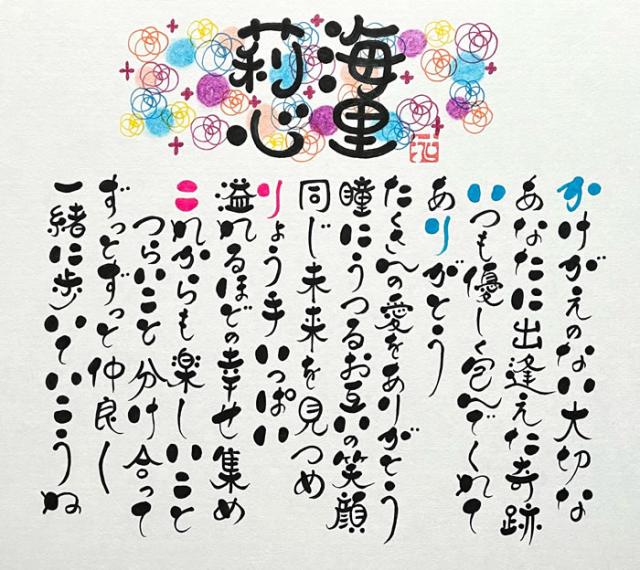 海里
莉心
かけがえのない大切な
あなたに出逢えた奇跡
いつも優しく包んでくれて
ありがとう
たくさんの愛をありがとう
瞳にうつるお互いの笑顔
同じ未来を見つめ
りょう手いっぱい
溢れるほどの幸せ集め
これからも楽しいこと
つらいこと分け合って
ずっとずっと仲良し
一緒に歩いていこうね